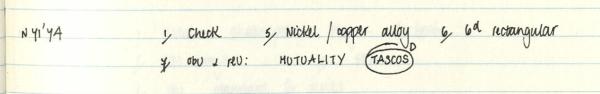 NY1'74 1, Check 5, Nickel / copper alloy 6, 6d rectangular
7, obv & rev: MUTUALITY TASCOS D